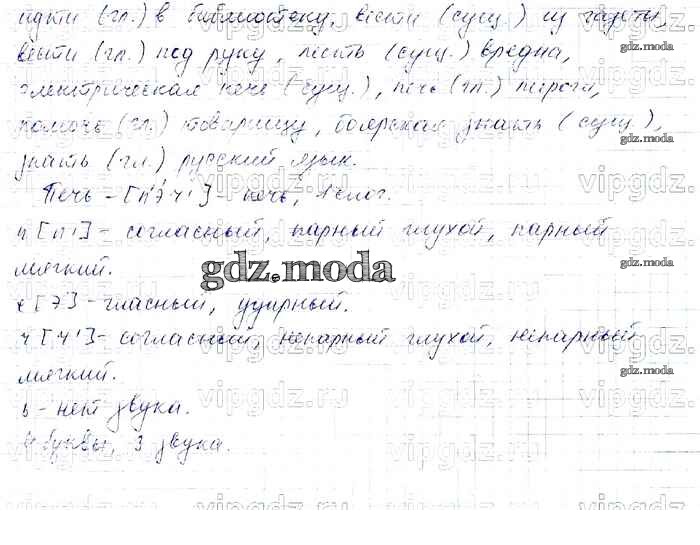 идти (гл.) в библиотеку, вести (сущ.) из газеты,
вести (гл.) под руку, лесть (сущ.) вредна,
электрическая печь (сущ.), печь (гл.) пироги,
помочь (гл.) товарищу, боярская знать (сущ.),
знать (гл.) русский язык.
Печь - [п'э́ч'] - печь, 1 слог.
п [п'] - согласный, парный глухой, парный
мягкий.
е [э] - гласный, ударный.
ч [ч'] - согласный, непарный глухой, непарный
мягкий.
ь - нет звука.
4 буквы, 3 звука.
gdz.moda
gdz.moda
gdz.moda
gdz.moda
gdz.moda
vipgdz.ru